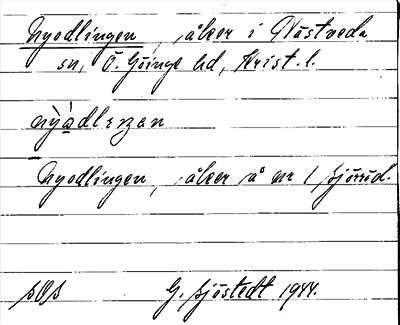 Nyodlingen, åker i Västveda
sn, Ö. Göinge hd, Krist. l.
nỳàdlıŋən
Nyodlingen, åker å nr 1 Sjöröd.
SOS G. Sjöstedt 1944.